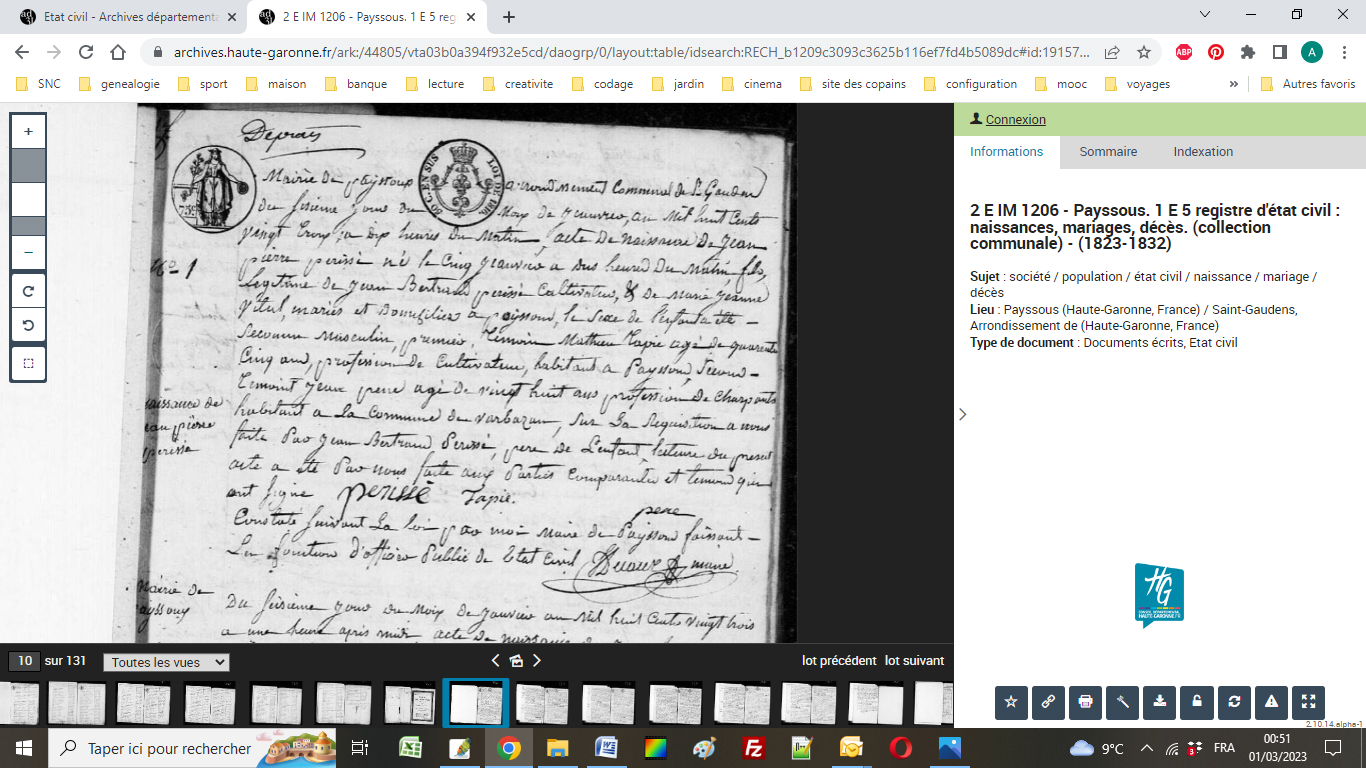 Etat civil - Archives département
2 E IM 1206 - Payssous. 1 E 5 reg
archives.haute-garonne.fr/ark:/44805/vta03b0a394f932e5cd/daogrp/0/layout:table/idsearch:RECH_b1209c3093c3625b116ef7fd4b5089dc#id:19157...
ABP
A
SNC genealogie sport maison banque lecture creativite codage jardin cinema site des copains configuration mooc voyages » Autres favoris
50 CEN SUS LOI DE 1816
Mairie de payssous arrondissement Communal de St Gauden
du sixieme jour du Moix de januvier, an Mil huit Cents
vingt trois, a dix heures du Matin, acte de Naissance de jean
pierre perissé né le Cinq januvier a dus heures du Matin, fils
No 1
legitime de jean Bertrand perissé Cultivateur, & de Marie jeanne
Vital, mariés et Domiciliés a payssous, le Sexe de l'enfant a été
reconnu Masculin, premier temoin Mathieu Tapie agé de quarente
Cinq ans, profession de Cultivateur, habitant a Payssous, Second
Temoint jean pere agé de vingt huit ans profession de charpantié
naissance de
jean pierre
perissé
habitant a La Commune de Barbazan, sur La Requisition a nous
faite Par jean Bertrand Perissé, pere de L'enfant, lecture du present
acte a été Par nous faite aux Parties Comparantes et temoins qui
ont signe perissé Tapie.
pere
Constaté suivant La loi par moi Maire de Payssous faissant
Les fonction d'officier Public de l'Etat Civil maire
Mairie de
payssous
Du sixieme jour du Moix de januvier an Mil huit Cents vingt trois
a une heure apres midi, acte de naissance de
10 sur 131 Toutes les vues lot précédent lot suivant
Connexion
Informations Sommaire Indexation
2 E IM 1206 - Payssous. 1 E 5 registre d'état civil :
naissances, mariages, décès. (collection
communale) - (1823-1832)
Sujet : société / population / état civil / naissance / mariage /
décès
Lieu : Payssous (Haute-Garonne, France) / Saint-Gaudens,
Arrondissement de (Haute-Garonne, France)
Type de document : Documents écrits, Etat civil
HG
CONSEIL DÉPARTEMENTAL
HAUTE-GARONNE.FR
2.10.14.alpha-1
Taper ici pour rechercher
9°C FRA 00:51
01/03/2023